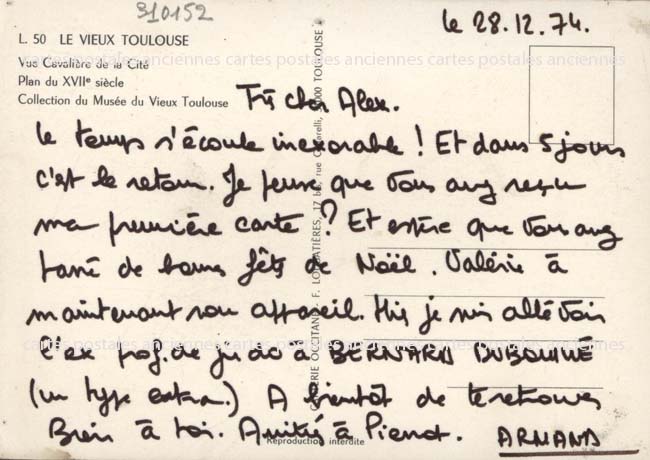 310152
le 28.12.74.
L. 50 LE VIEUX TOULOUSE
Vue Cavalière de la Cité
Plan du XVIIe siècle
Collection du Musée du Vieux Toulouse
Très cher Alex.
le temps s'écoule inexorable ! Et dans 5 jours
c'est le retour. Je pense que vous avez reçu
ma première carte ? Et espère que vous avez
passé de bonnes fêtes de Noël. Valérie à
maintenant son appareil. Hier je suis allé voir
l'ex prof. de judo à BERNARD
(un type extra.) A bientôt de te retrouver
Bien à toi. Amitié à Pierrot.
ARMAND
Reproduction interdite
GALERIE OCCITANE, F. 17 bis, rue 31000 TOULOUSE
cartes postales anciennes cartes postales anciennes cartes postales anciennes
cartes postales anciennes cartes postales anciennes cartes postales anciennes